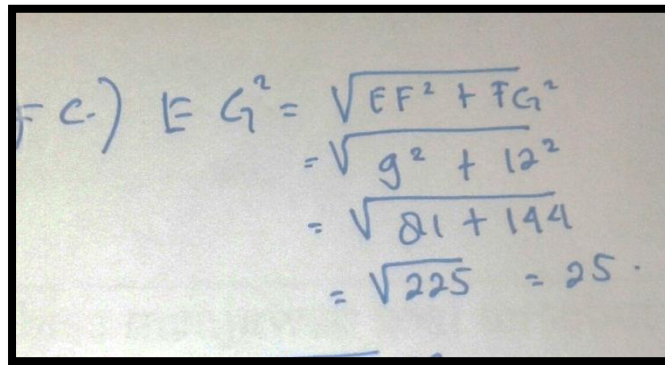 c.) EG² = √EF² + FG²
= √9² + 12²
= √81 + 144
= √225 = 25.